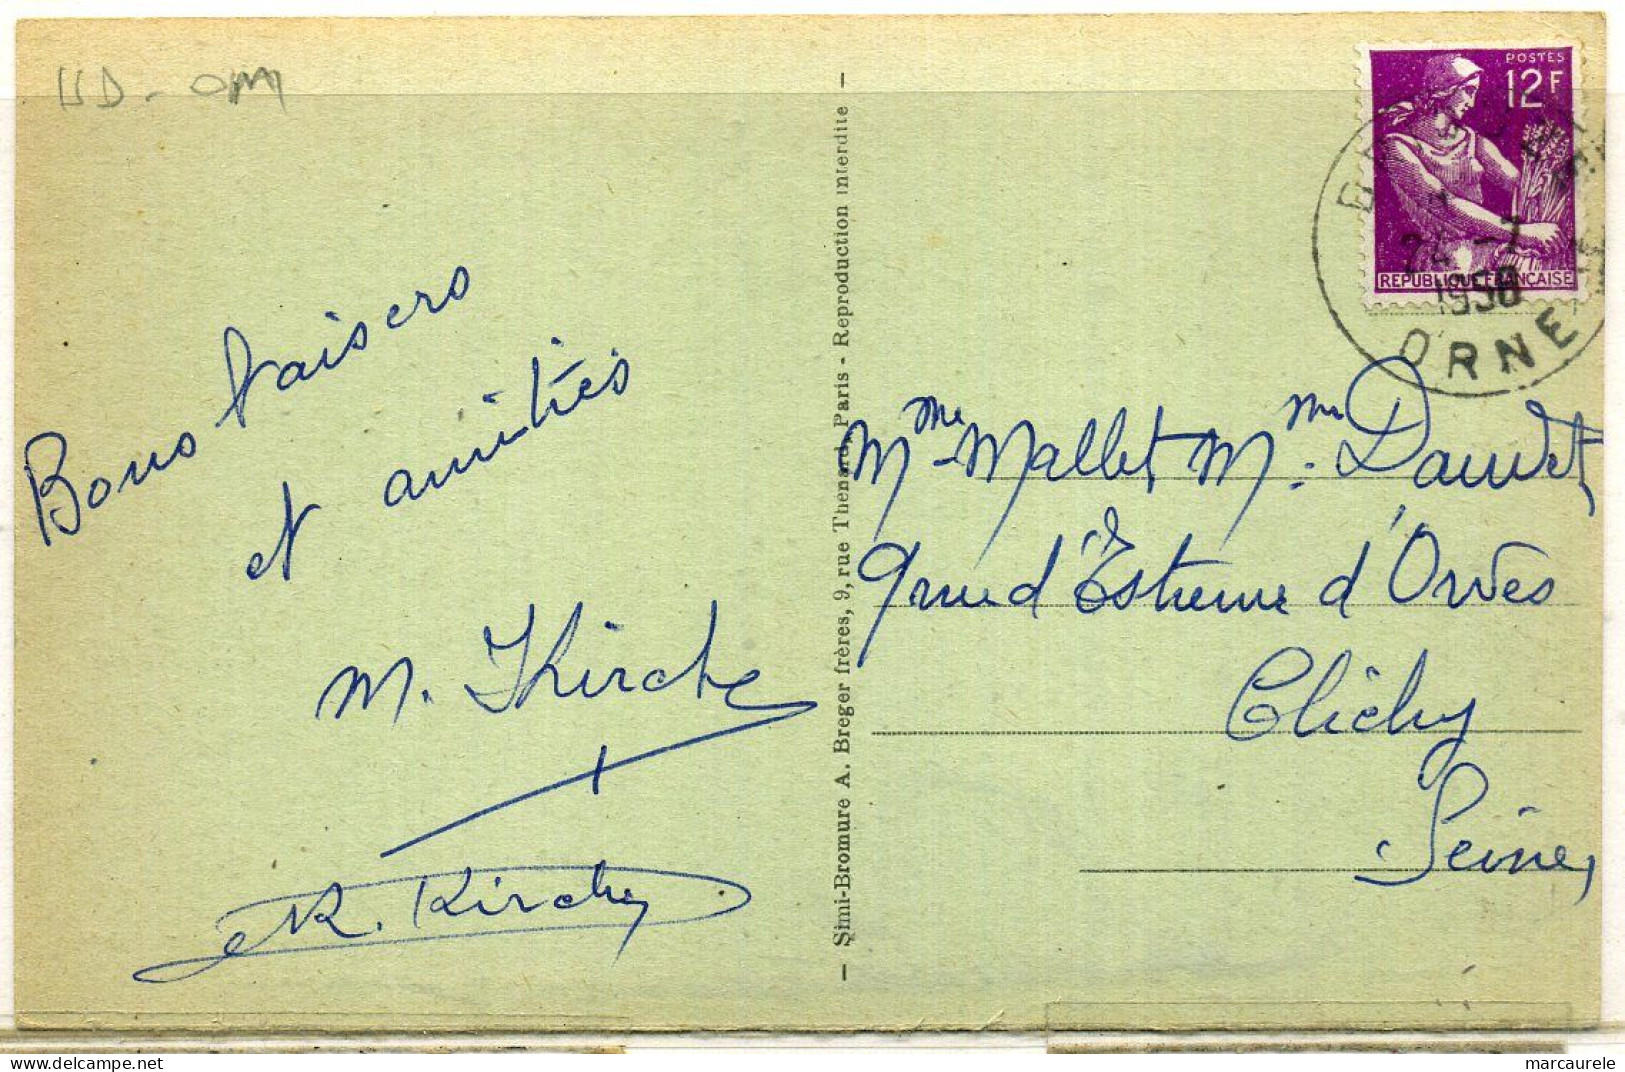 POSTES
12F
REPUBLIQUE FRANÇAISE
24 -7
1958
ORNE
Bons baisers
et amitiés
M. Kirche
R. Kirche
— Simi-Bromure A. Breger frères, 9, rue Thenard, Paris - Reproduction interdite —
Mme Mallet Mme Daudet
9 rue d'Estienne d'Orves
Clichy
Seine
marcaurele